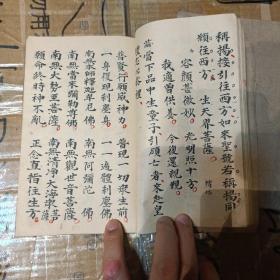 稱揚接引往西方如來聖號若稱揚
願往西方　生天界菩薩
容顏甚微妙　光明照十方
我適曾供養　今復還親覲
當下品中生童子引願
普賢行願威神力　普現一切如來前
一身復現剎塵身　一一遍禮剎塵佛
南無本師釋迦牟尼佛　南無阿彌陀佛
南無當來彌勒尊佛　南無觀世音菩薩
南無大勢至菩薩　南無清淨大海眾菩薩
願命終時神不亂　正念直指往生方